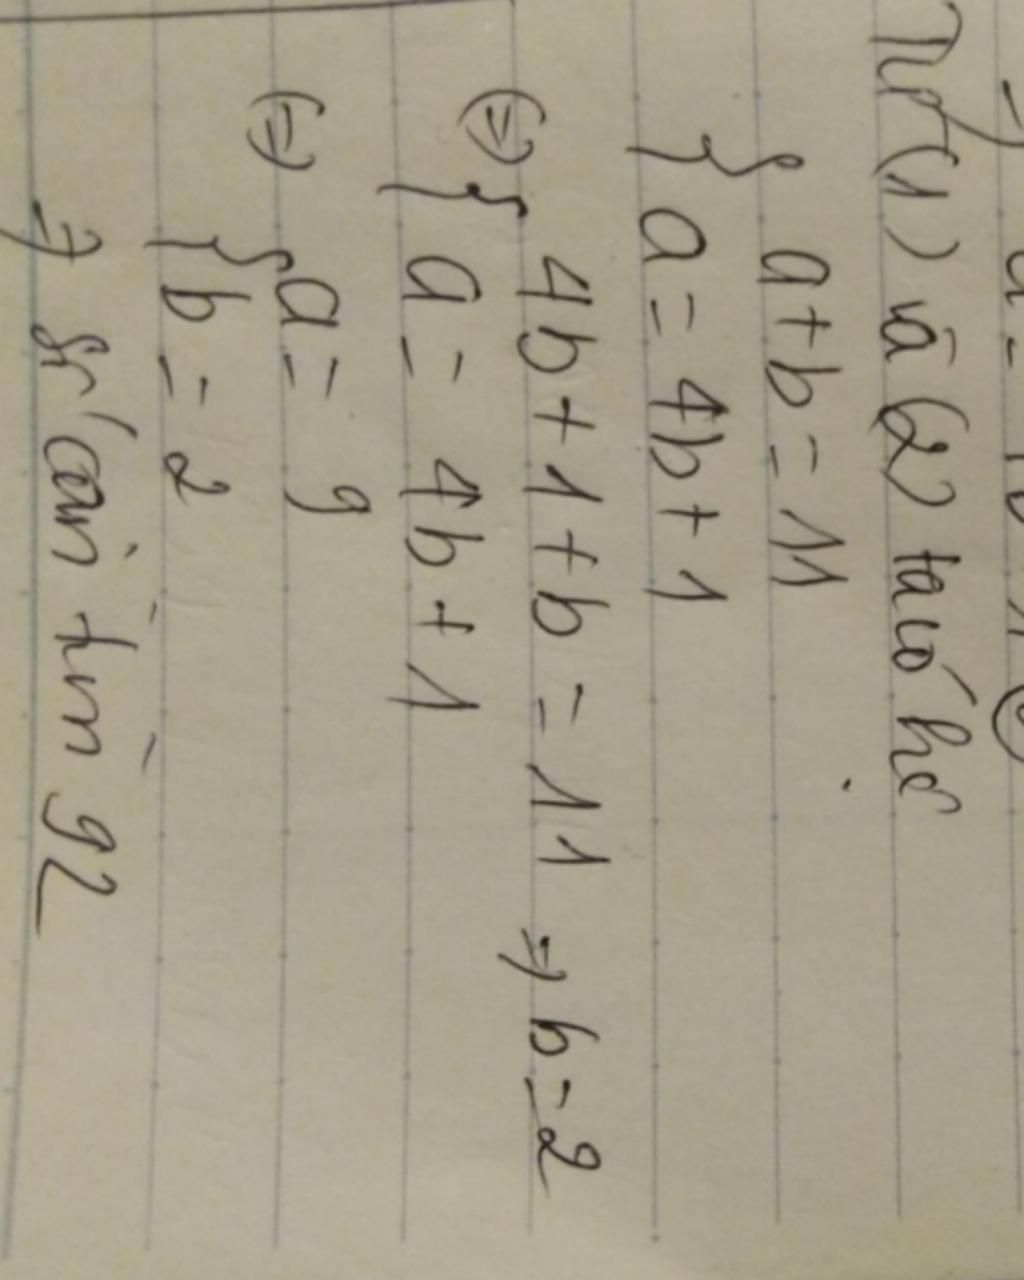 Từ (1) và (2) ta có hệ
{ a + b = 11
{ a = 4b + 1
(=) { 4b + 1 + b = 11 => b = 2
{ a = 4b + 1
(=) { a = 9
{ b = 2
=> Số cần tìm 92